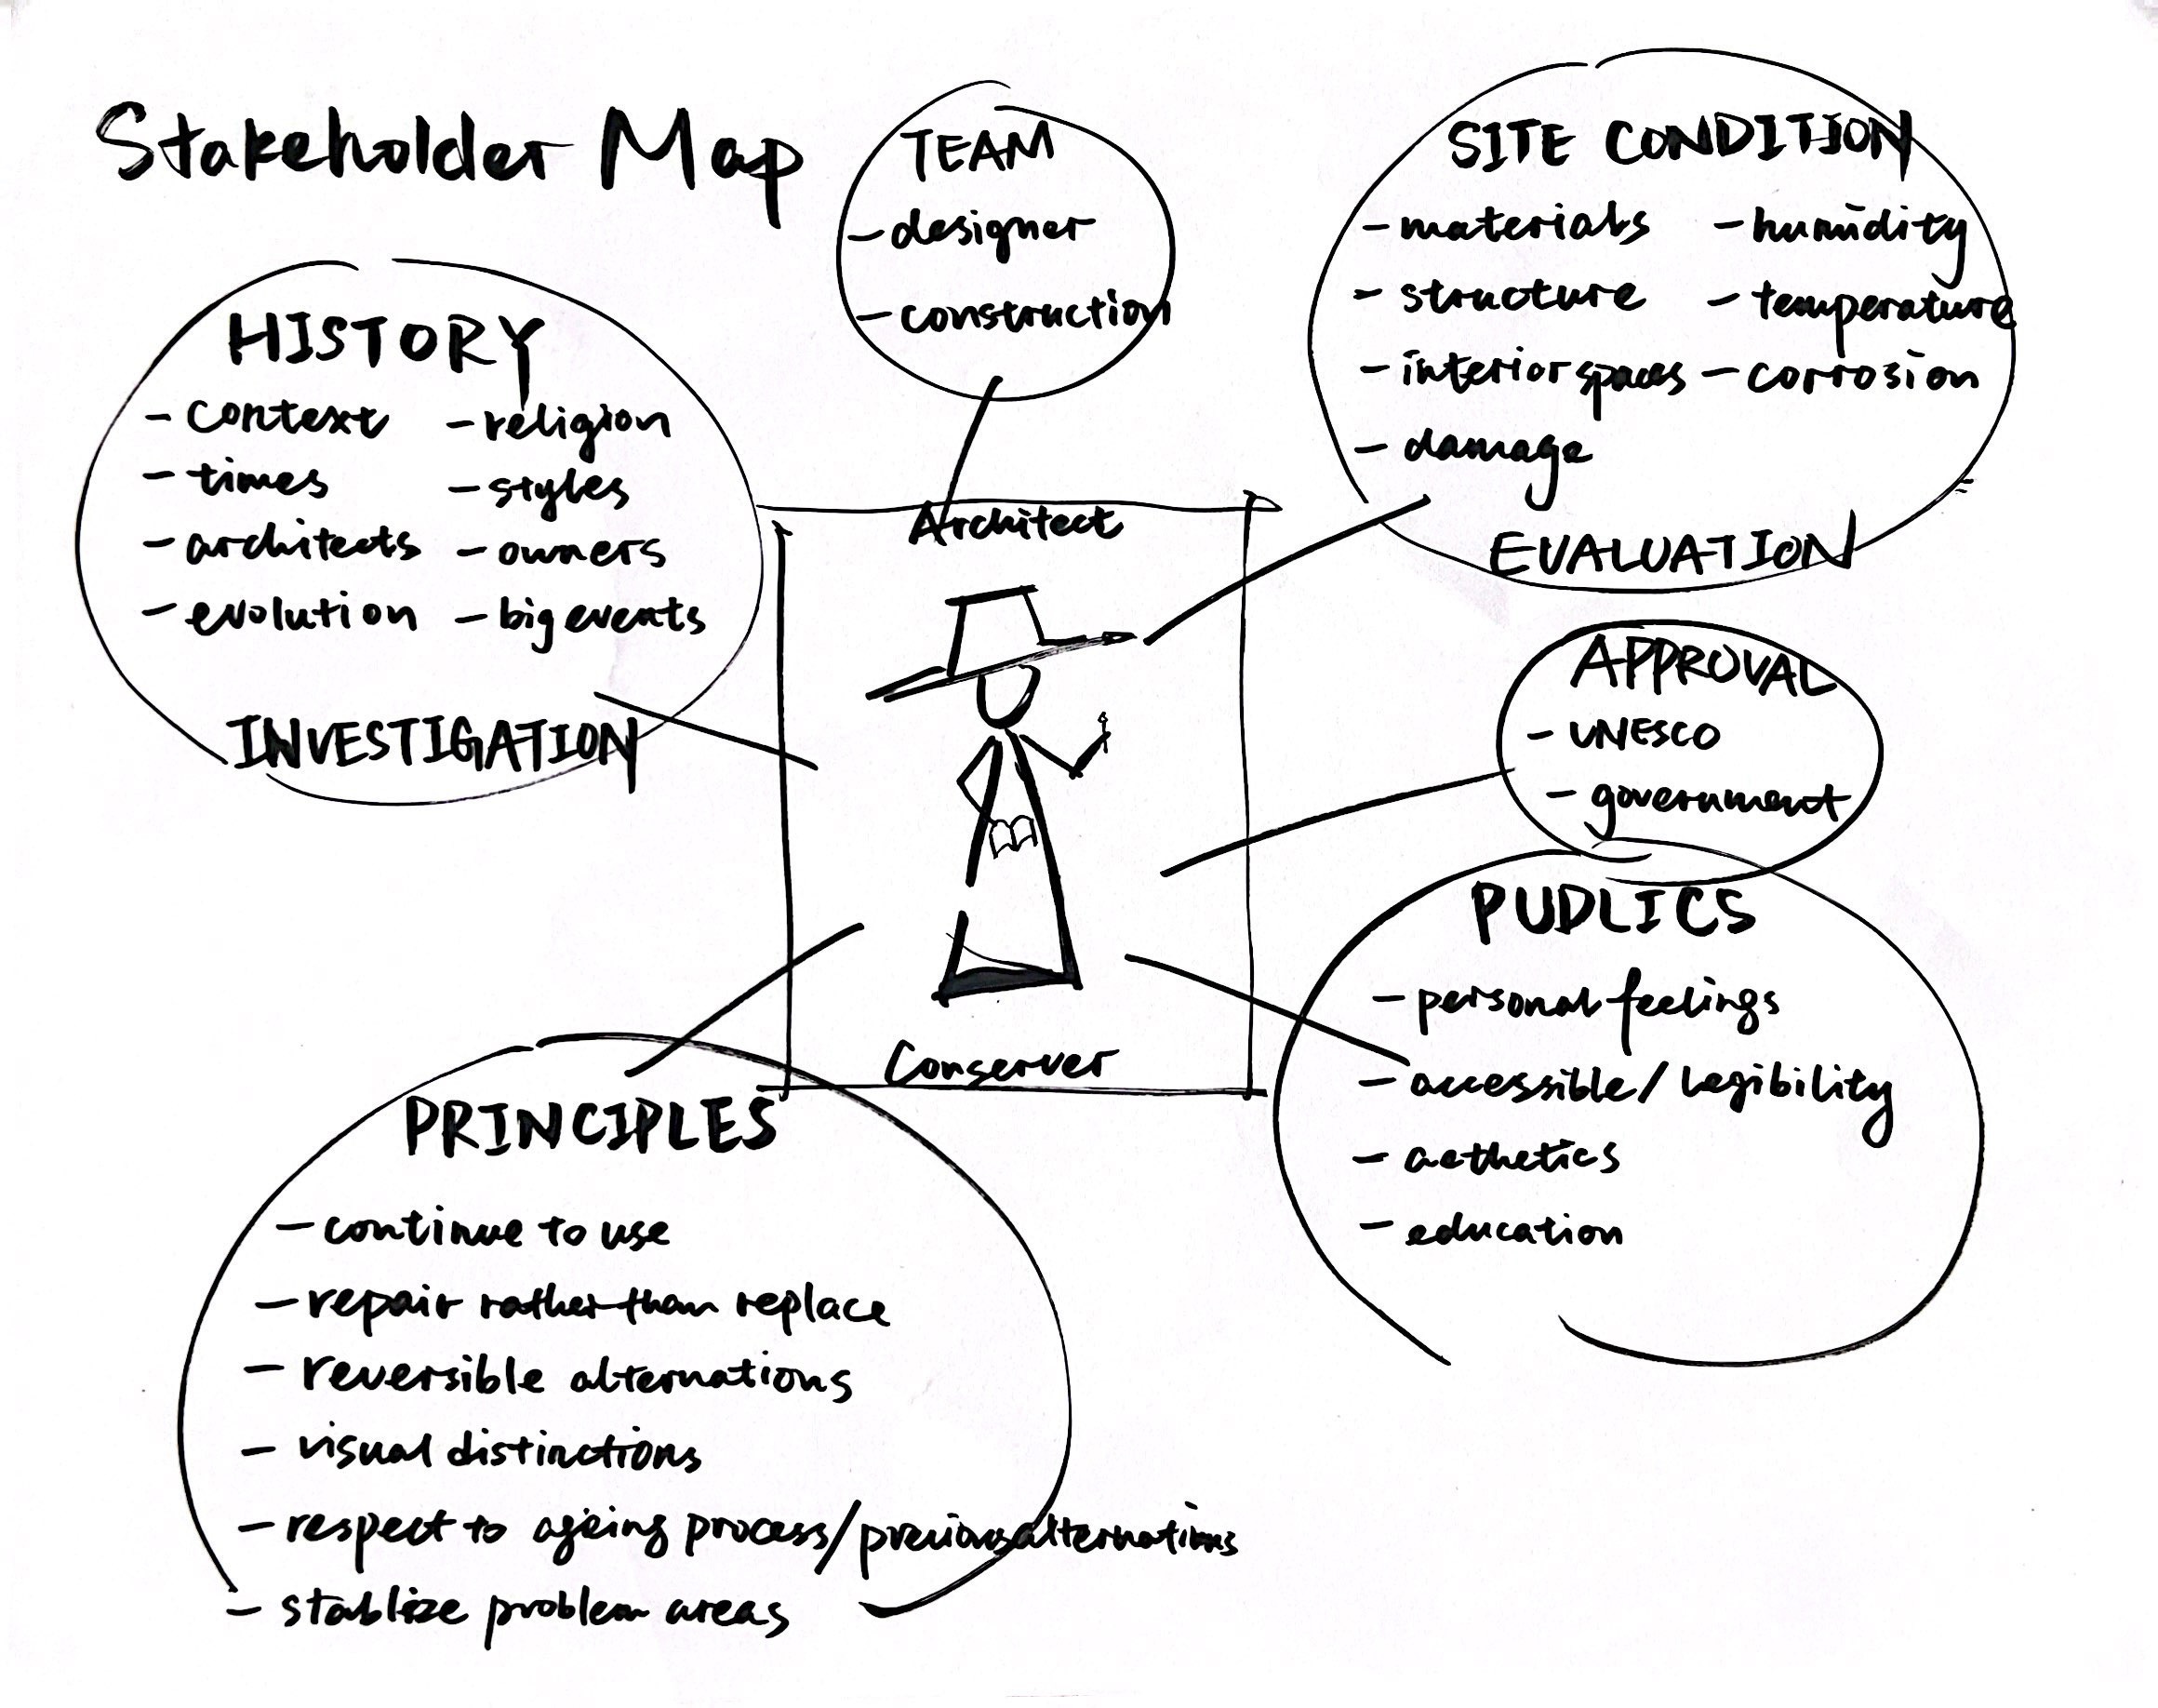 Stakeholder Map
TEAM
- designer
- construction
SITE CONDITION
- materials
- structure
- interior spaces
- damage
- humidity
- temperature
- corrosion
EVALUATION
HISTORY
- context
- times
- architects
- evolution
- religion
- styles
- owners
- big events
INVESTIGATION
Architect
Conserver
APPROVAL
- UNESCO
- government
PUDLICS
- personal feelings
- accessible/legibility
- aethetics
- education
PRINCIPLES
- continue to use
- repair rather than replace
- reversible alternations
- visual distinctions
- respect to ageing process/previous alternations
- stablize problem areas